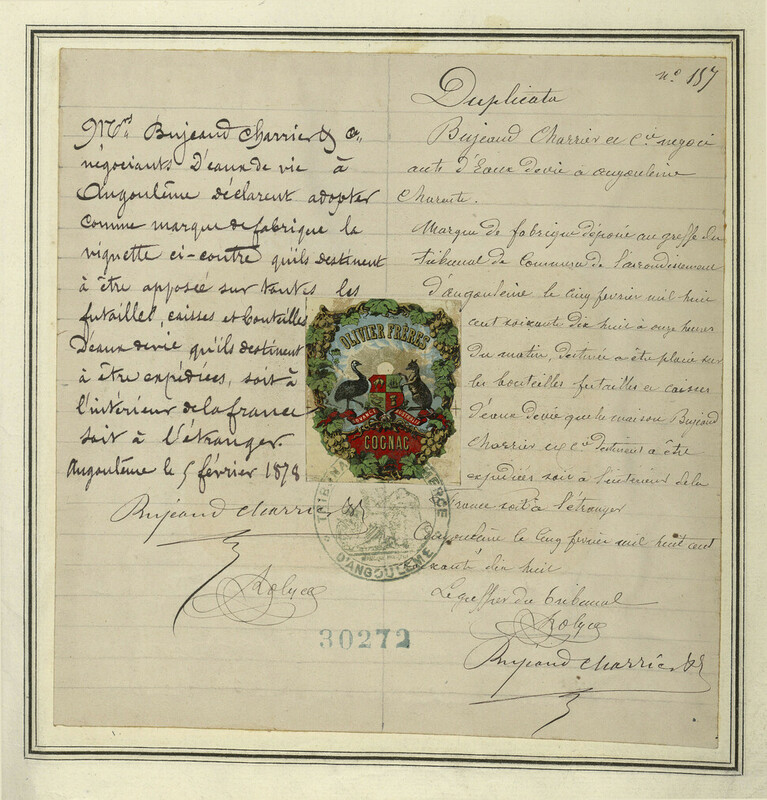 Mrs Bujeaud Charrier & Co
négociants D'eaux de vie à
Angoulême déclarent adopter
comme marque de fabrique la
vignette ci-contre qu'ils destinent
à être apposée sur toutes les
futailles, caisses et bouteilles
D'eaux devie qu'ils destinent
à être expédiées, soit à
l'intérieur de la france
soit à l'étranger
Angoulême le 5 février 1878
Bujeaud Charrier
OLIVIER FRÈRES
FRANCE AUSTRALIE
COGNAC
TRIBUNAL COMMERCE
D'ANGOULÊME
30272
no 157
Duplicata
Bujeaud Charrier et Cie negoci
ants d'Eaux devie à angouleme
Charente.
Marque de fabrique déposée au greffe du
Tribunal de Commerce de l'arrondissement
d'angouleme le cinq fevrier mil huit
cent soixante dix huit à onze heures
du matin, destinée a être placée sur
les bouteilles futailles et caisses
d'eaux devie que la maison Bujeaud
Charrier et Cie destinent a être
expediées soit à l'interieur de la
France soit à l'étranger
Angouleme le cinq fevrier mil huit cent
soixante dix huit
Le greffier du Tribunal
Bujeaud Charrier